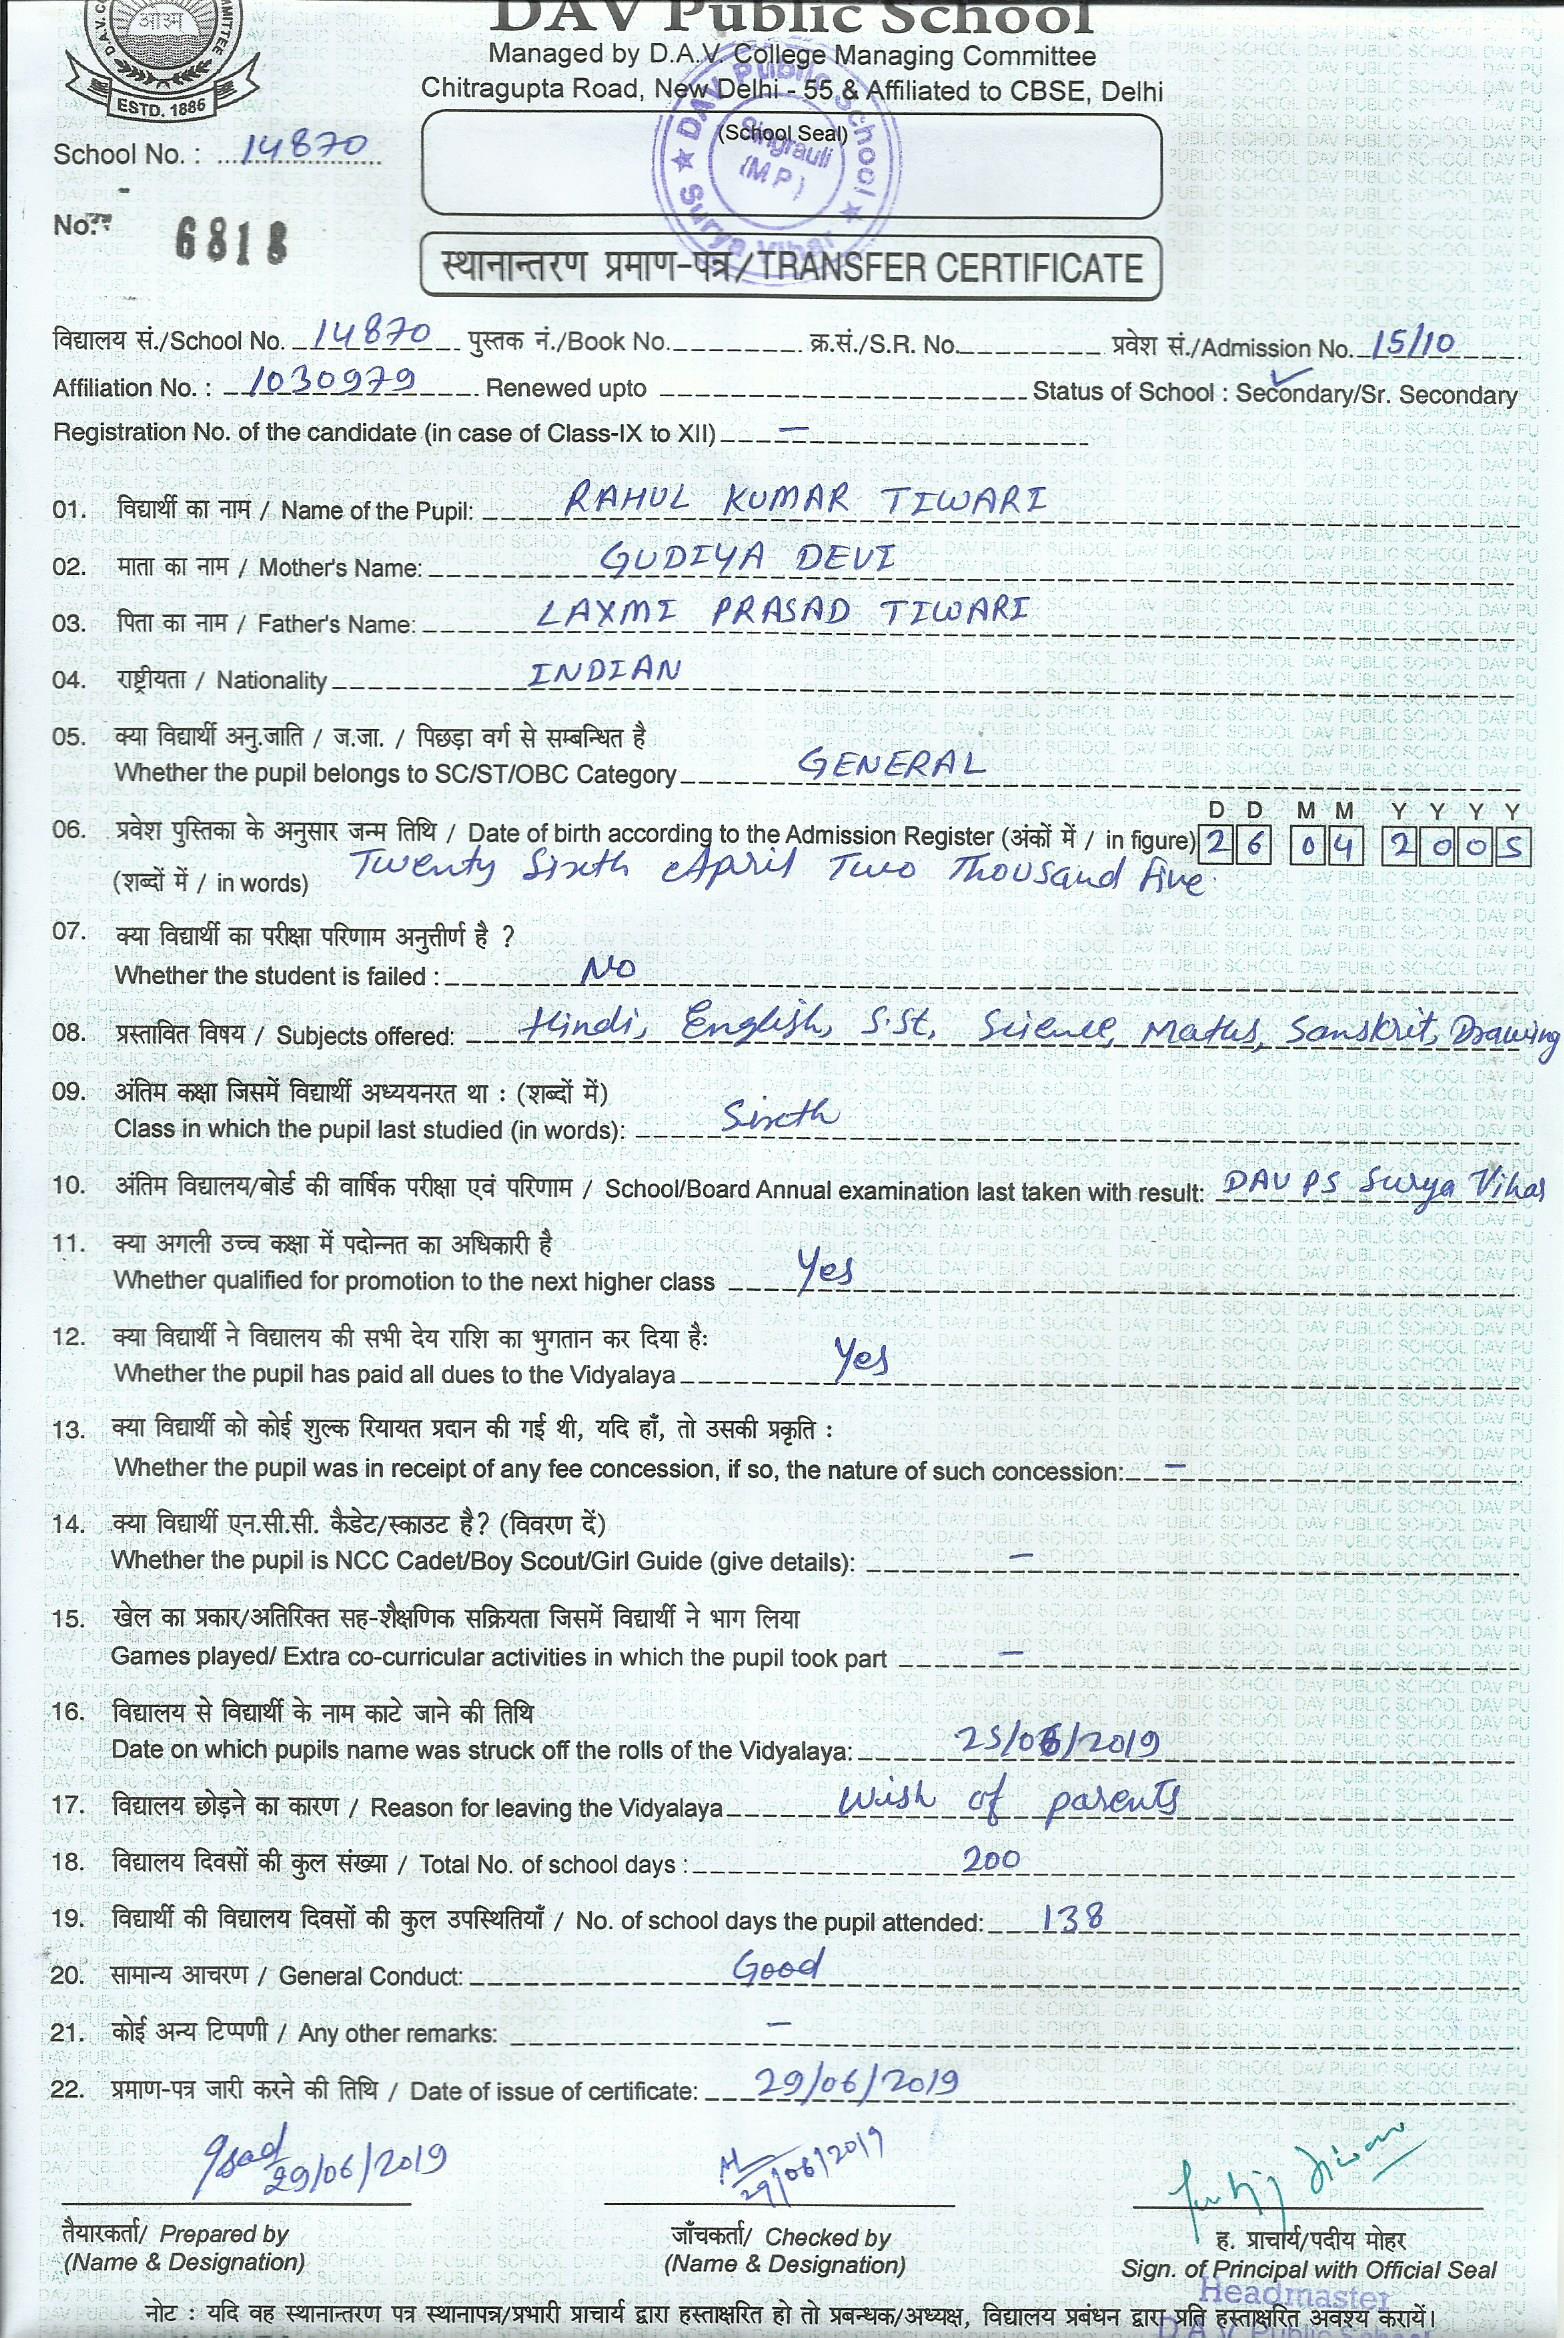 DAV Public School
Managed by D.A.V. College Managing Committee
Chitragupta Road, New Delhi - 55 & Affiliated to CBSE, Delhi
ओ३म्
ESTD. 1886
(School Seal)
DAV Public School
Singrauli
(M P)
Surya Vihar
School No. : 14870
No. 6818
स्थानान्तरण प्रमाण-पत्र/TRANSFER CERTIFICATE
विद्यालय सं./School No. 14870 पुस्तक नं./Book No. क्र.सं./S.R. No. प्रवेश सं./Admission No. 15/10
Affiliation No. : 1030979 Renewed upto Status of School : Secondary/Sr. Secondary
Registration No. of the candidate (in case of Class-IX to XII) –
01. विद्यार्थी का नाम / Name of the Pupil: RAHUL KUMAR TIWARI
02. माता का नाम / Mother's Name: GUDIYA DEVI
03. पिता का नाम / Father's Name: LAXMI PRASAD TIWARI
04. राष्ट्रीयता / Nationality INDIAN
05. क्या विद्यार्थी अनु.जाति / ज.जा. / पिछड़ा वर्ग से सम्बन्धित है
Whether the pupil belongs to SC/ST/OBC Category GENERAL
D D M M Y Y Y Y
06. प्रवेश पुस्तिका के अनुसार जन्म तिथि / Date of birth according to the Admission Register (अंकों में / in figure) 26 04 2005
(शब्दों में / in words) Twenty Sixth April Two Thousand Five
07. क्या विद्यार्थी का परीक्षा परिणाम अनुत्तीर्ण है ?
Whether the student is failed : No
08. प्रस्तावित विषय / Subjects offered: Hindi, English, S.St, Science, Maths, Sanskrit, Drawing
09. अंतिम कक्षा जिसमें विद्यार्थी अध्ययनरत था : (शब्दों में)
Class in which the pupil last studied (in words): Sixth
10. अंतिम विद्यालय/बोर्ड की वार्षिक परीक्षा एवं परिणाम / School/Board Annual examination last taken with result: DAV PS Surya Vihar
11. क्या अगली उच्च कक्षा में पदोन्नत का अधिकारी है
Whether qualified for promotion to the next higher class Yes
12. क्या विद्यार्थी ने विद्यालय की सभी देय राशि का भुगतान कर दिया है:
Whether the pupil has paid all dues to the Vidyalaya Yes
13. क्या विद्यार्थी को कोई शुल्क रियायत प्रदान की गई थी, यदि हाँ, तो उसकी प्रकृति :
Whether the pupil was in receipt of any fee concession, if so, the nature of such concession: –
14. क्या विद्यार्थी एन.सी.सी. कैडेट/स्काउट है? (विवरण दें)
Whether the pupil is NCC Cadet/Boy Scout/Girl Guide (give details): –
15. खेल का प्रकार/अतिरिक्त सह-शैक्षणिक सक्रियता जिसमें विद्यार्थी ने भाग लिया
Games played/ Extra co-curricular activities in which the pupil took part –
16. विद्यालय से विद्यार्थी के नाम काटे जाने की तिथि
Date on which pupils name was struck off the rolls of the Vidyalaya: 25/06/2019
17. विद्यालय छोड़ने का कारण / Reason for leaving the Vidyalaya Wish of parents
18. विद्यालय दिवसों की कुल संख्या / Total No. of school days : 200
19. विद्यार्थी की विद्यालय दिवसों की कुल उपस्थितियाँ / No. of school days the pupil attended: 138
20. सामान्य आचरण / General Conduct: Good
21. कोई अन्य टिप्पणी / Any other remarks: –
22. प्रमाण-पत्र जारी करने की तिथि / Date of issue of certificate: 29/06/2019
29/06/2019 29/06/2019
तैयारकर्ता/ Prepared by जाँचकर्ता/ Checked by ह. प्राचार्य/पदीय मोहर
(Name & Designation) (Name & Designation) Sign. of Principal with Official Seal
Headmaster
नोट : यदि वह स्थानान्तरण पत्र स्थानापन्न/प्रभारी प्राचार्य द्वारा हस्ताक्षरित हो तो प्रबन्धक/अध्यक्ष, विद्यालय प्रबंधन द्वारा प्रति हस्ताक्षरित अवश्य करायें।
D A V Public School